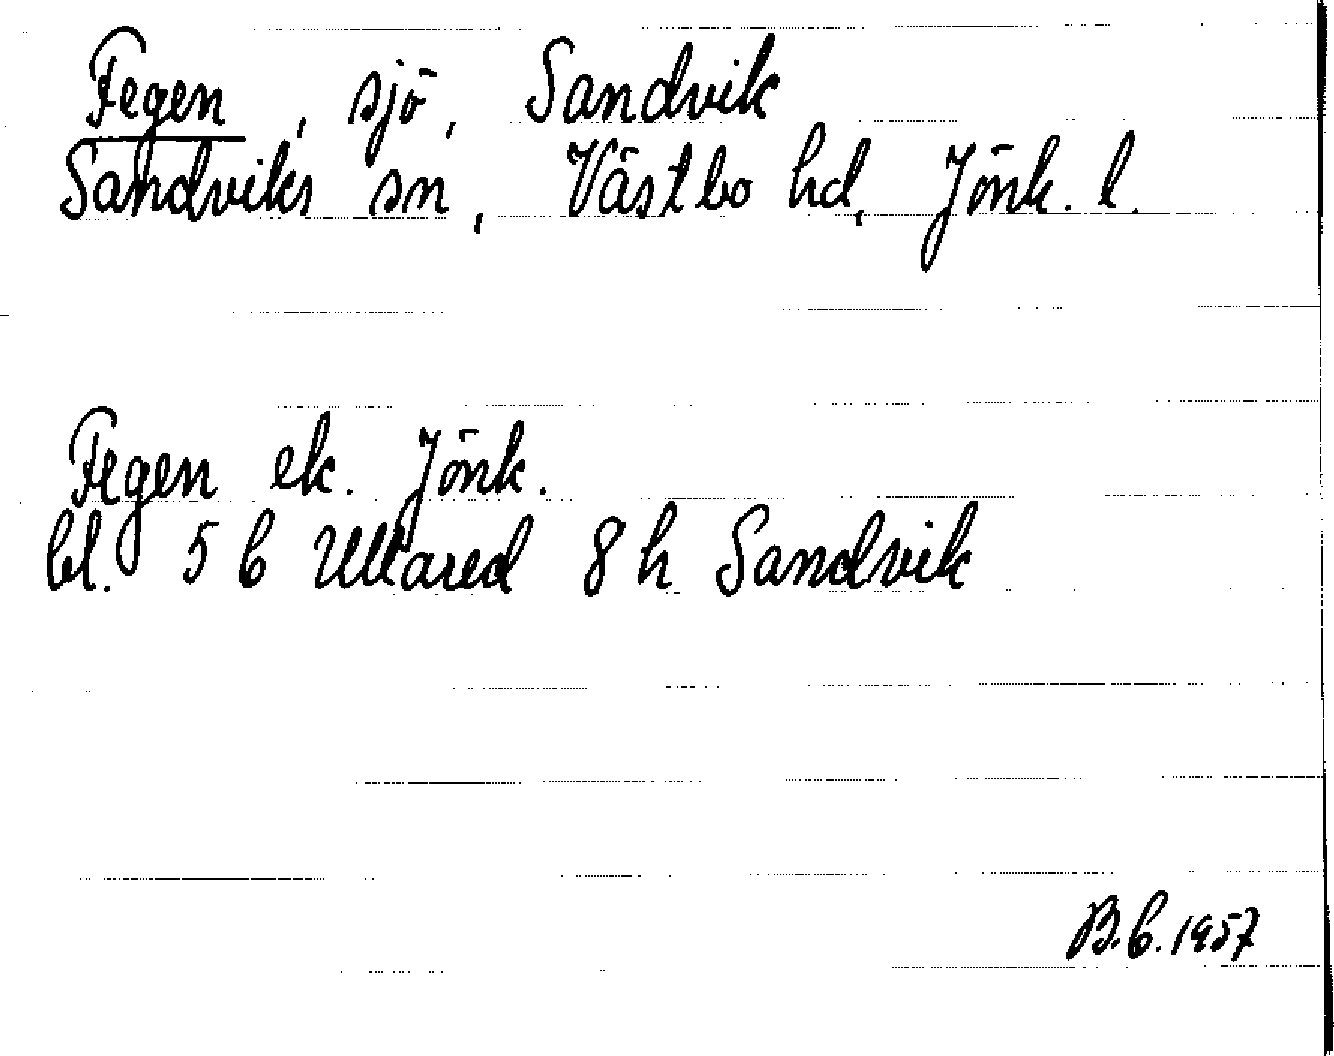 Fegen, sjö, Sandvik
Sandviks sn, Västbo hd, Jönk. l.
Fegen ek. Jönk.
bl. 5 C Ullared 8 h Sandvik
B.C. 1957